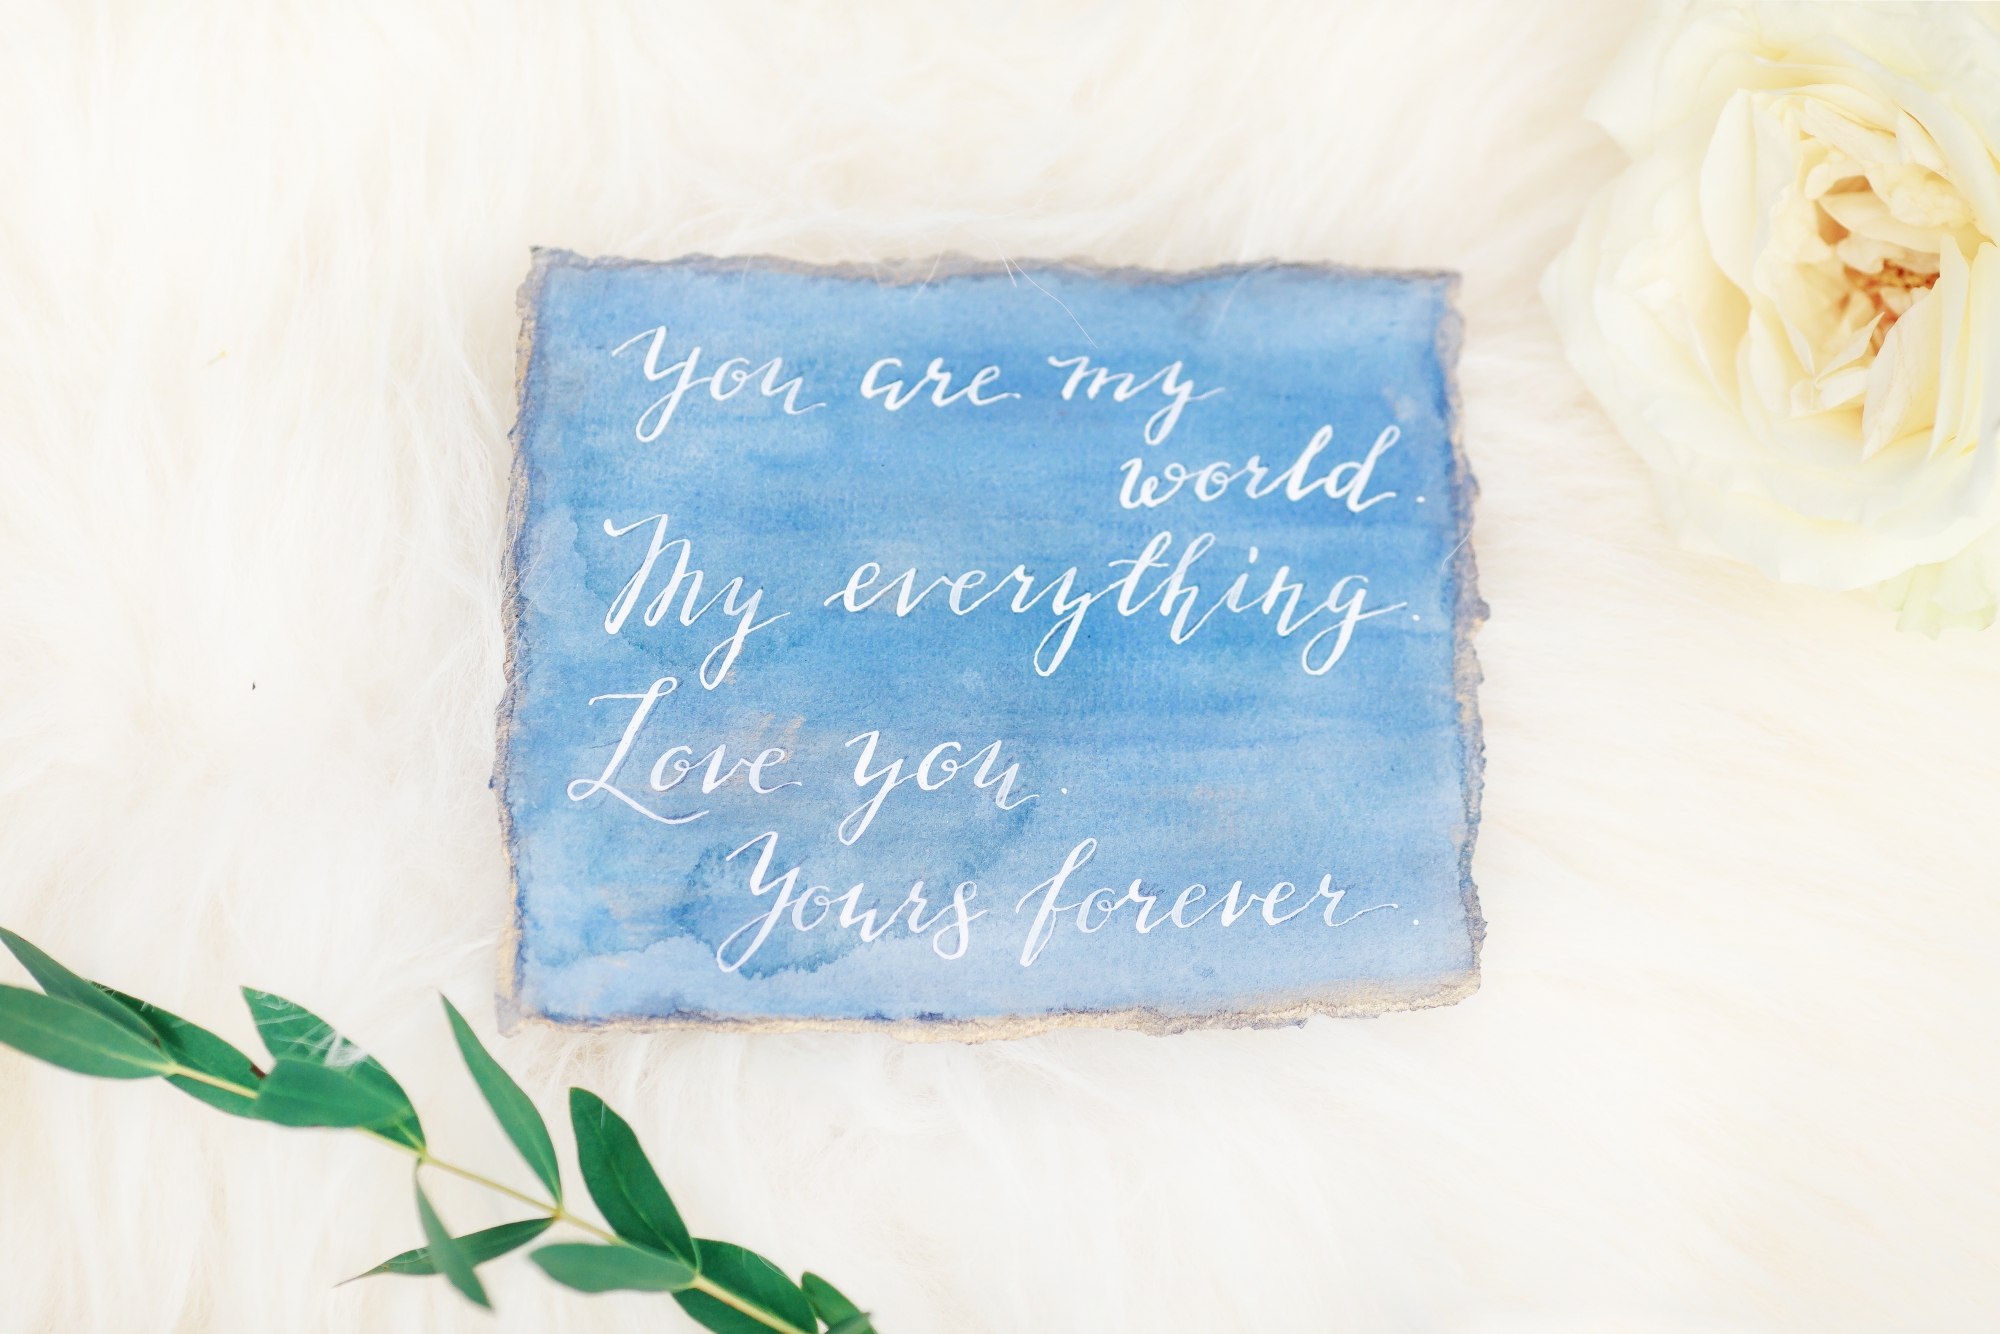 You are my
world.
My everything.
Love you.
Yours forever.